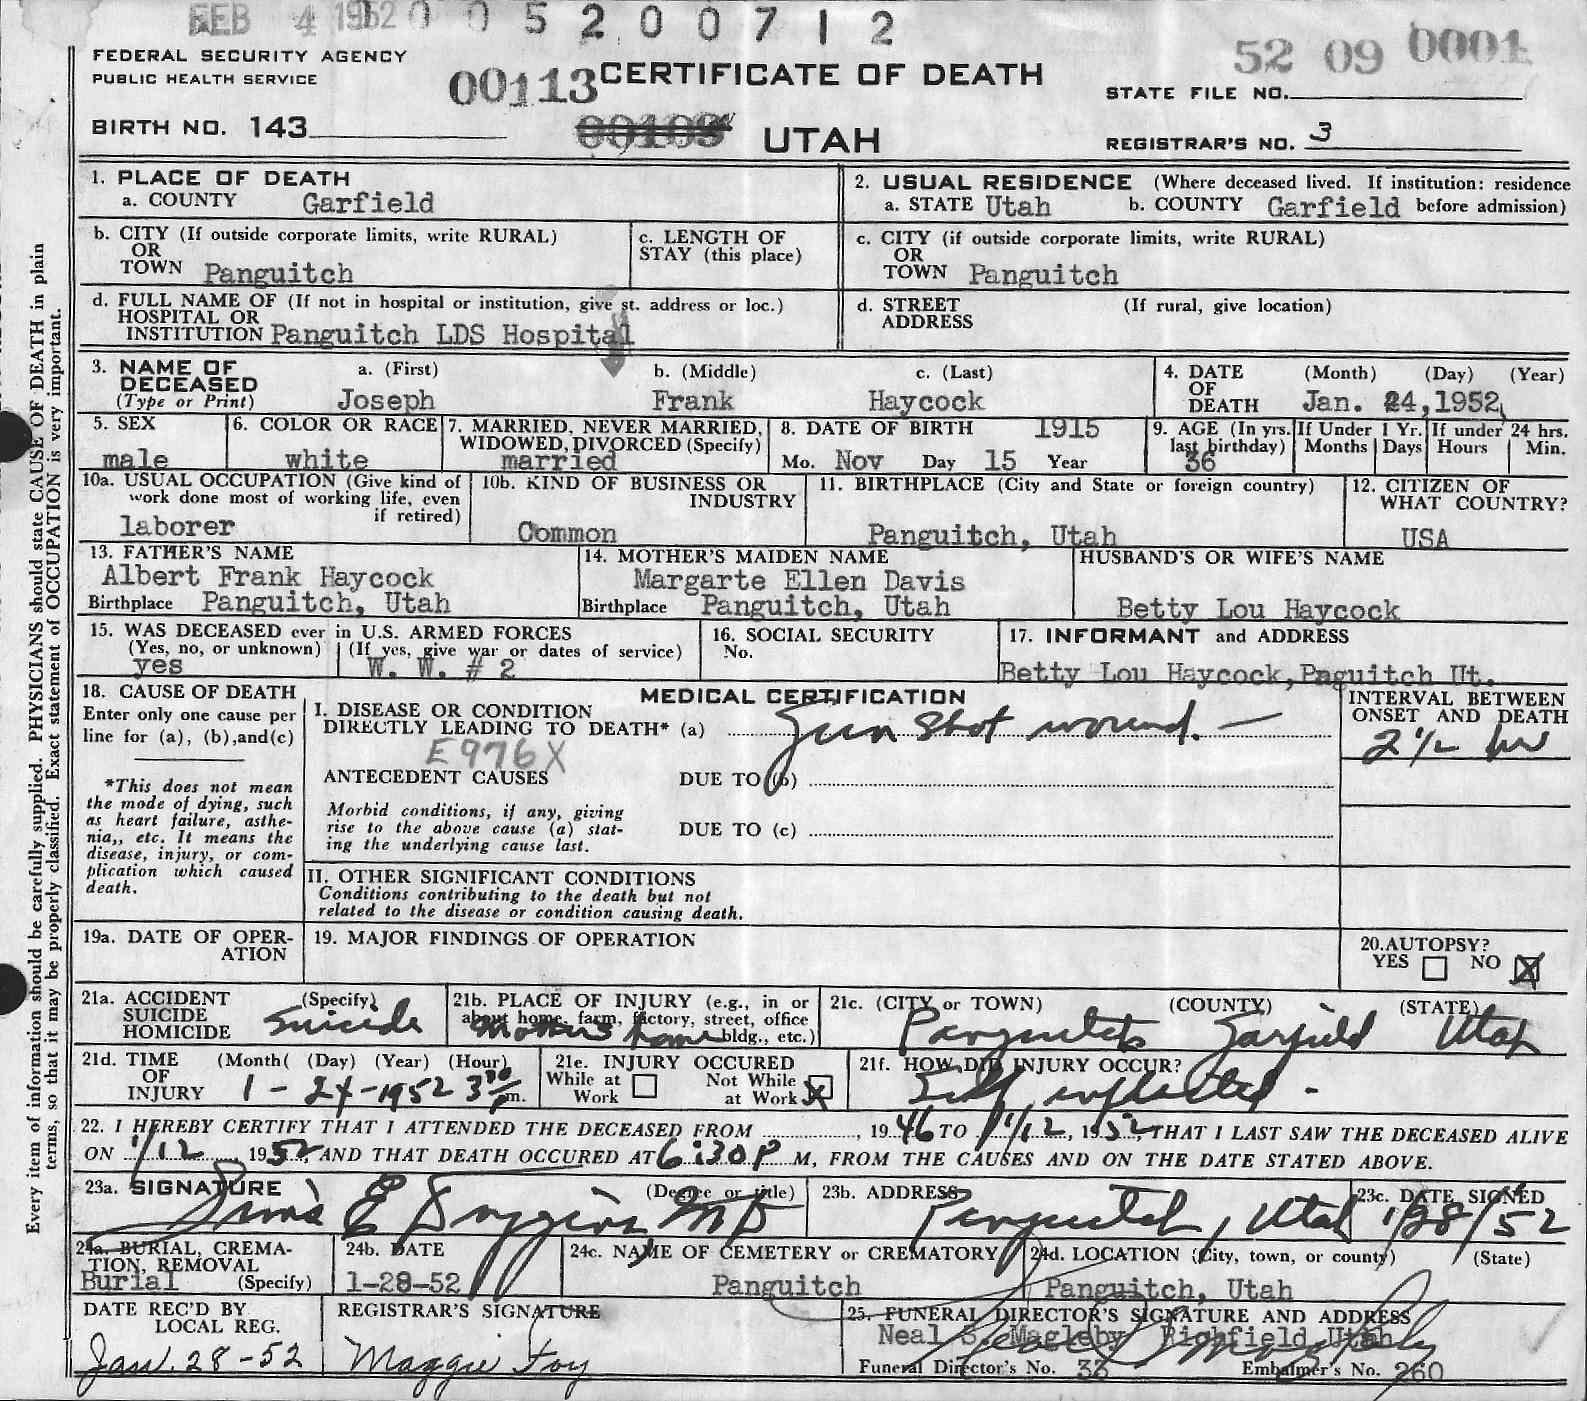 FEB 4 1952 0 0 5 2 0 0 7 1 2
FEDERAL SECURITY AGENCY
PUBLIC HEALTH SERVICE
00113 CERTIFICATE OF DEATH
52 09 0001
STATE FILE NO.
BIRTH NO. 143
UTAH
REGISTRAR'S NO. 3
1. PLACE OF DEATH
a. COUNTY Garfield
2. USUAL RESIDENCE (Where deceased lived. If institution: residence
a. STATE Utah b. COUNTY Garfield before admission)
b. CITY (If outside corporate limits, write RURAL)
OR
TOWN Panguitch
c. LENGTH OF
STAY (this place)
c. CITY (if outside corporate limits, write RURAL)
OR
TOWN Panguitch
d. FULL NAME OF (If not in hospital or institution, give st. address or loc.)
HOSPITAL OR
INSTITUTION Panguitch LDS Hospital
d. STREET (If rural, give location)
ADDRESS
3. NAME OF a. (First) b. (Middle) c. (Last)
DECEASED
(Type or Print) Joseph Frank Haycock
4. DATE (Month) (Day) (Year)
OF
DEATH Jan. 24, 1952
5. SEX
male
6. COLOR OR RACE
white
7. MARRIED, NEVER MARRIED,
WIDOWED, DIVORCED (Specify)
married
8. DATE OF BIRTH 1915
Mo. Nov Day 15 Year
9. AGE (In yrs.
last birthday)
36
If Under 1 Yr.
Months Days
If under 24 hrs.
Hours Min.
10a. USUAL OCCUPATION (Give kind of
work done most of working life, even
if retired)
laborer
10b. KIND OF BUSINESS OR
INDUSTRY
Common
11. BIRTHPLACE (City and State or foreign country)
Panguitch, Utah
12. CITIZEN OF
WHAT COUNTRY?
USA
13. FATHER'S NAME
Albert Frank Haycock
Birthplace Panguitch, Utah
14. MOTHER'S MAIDEN NAME
Margarte Ellen Davis
Birthplace Panguitch, Utah
HUSBAND'S OR WIFE'S NAME
Betty Lou Haycock
15. WAS DECEASED ever in U.S. ARMED FORCES
(Yes, no, or unknown) (If yes, give war or dates of service)
yes W. W. # 2
16. SOCIAL SECURITY
No.
17. INFORMANT and ADDRESS
Betty Lou Haycock, Paguitch Ut.
18. CAUSE OF DEATH
Enter only one cause per
line for (a), (b),and(c)
*This does not mean
the mode of dying, such
as heart failure, asthe-
nia,, etc. It means the
disease, injury, or com-
plication which caused
death.
MEDICAL CERTIFICATION
I. DISEASE OR CONDITION
DIRECTLY LEADING TO DEATH* (a) Gun shot wound. —
E976X
ANTECEDENT CAUSES DUE TO (b)
Morbid conditions, if any, giving
rise to the above cause (a) stat-
ing the underlying cause last.
DUE TO (c)
II. OTHER SIGNIFICANT CONDITIONS
Conditions contributing to the death but not
related to the disease or condition causing death.
INTERVAL BETWEEN
ONSET AND DEATH
2 1/2 hr
19a. DATE OF OPER-
ATION
19. MAJOR FINDINGS OF OPERATION
20.AUTOPSY?
YES NO X
21a. ACCIDENT (Specify)
SUICIDE
HOMICIDE Suicide
21b. PLACE OF INJURY (e.g., in or
about home, farm, factory, street, office
bldg., etc.)
Mothers home
21c. (CITY or TOWN) (COUNTY) (STATE)
Panguitch Garfield Utah
21d. TIME (Month( (Day) (Year) (Hour)
OF
INJURY 1 - 24 - 1952 3 30 p.m.
21e. INJURY OCCURED
While at Work
Not While at Work X
21f. HOW DID INJURY OCCUR?
Self inflicted -
22. I HEREBY CERTIFY THAT I ATTENDED THE DECEASED FROM , 1946 TO 1/12, 1952, THAT I LAST SAW THE DECEASED ALIVE
ON 1/12, 1952, AND THAT DEATH OCCURED AT 6:30 P M, FROM THE CAUSES AND ON THE DATE STATED ABOVE.
23a. SIGNATURE (Degree or title)
Sims E Duggins MD
23b. ADDRESS
Panguitch, Utah
23c. DATE SIGNED
1/28/52
24a. BURIAL, CREMA-
TION, REMOVAL
Burial (Specify)
24b. DATE
1-28-52
24c. NAME OF CEMETERY or CREMATORY
Panguitch
24d. LOCATION (City, town, or county) (State)
Panguitch, Utah
DATE REC'D BY
LOCAL REG.
Jan. 28-52
REGISTRAR'S SIGNATURE
Maggie Foy
25. FUNERAL DIRECTOR'S SIGNATURE AND ADDRESS
Neal S. Magleby Richfield Utah
Funeral Director's No. 33 Embalmer's No. 260
Every item of information should be carefully supplied. PHYSICIANS should state CAUSE OF DEATH in plain
terms, so that it may be properly classified. Exact statement of OCCUPATION is very important.